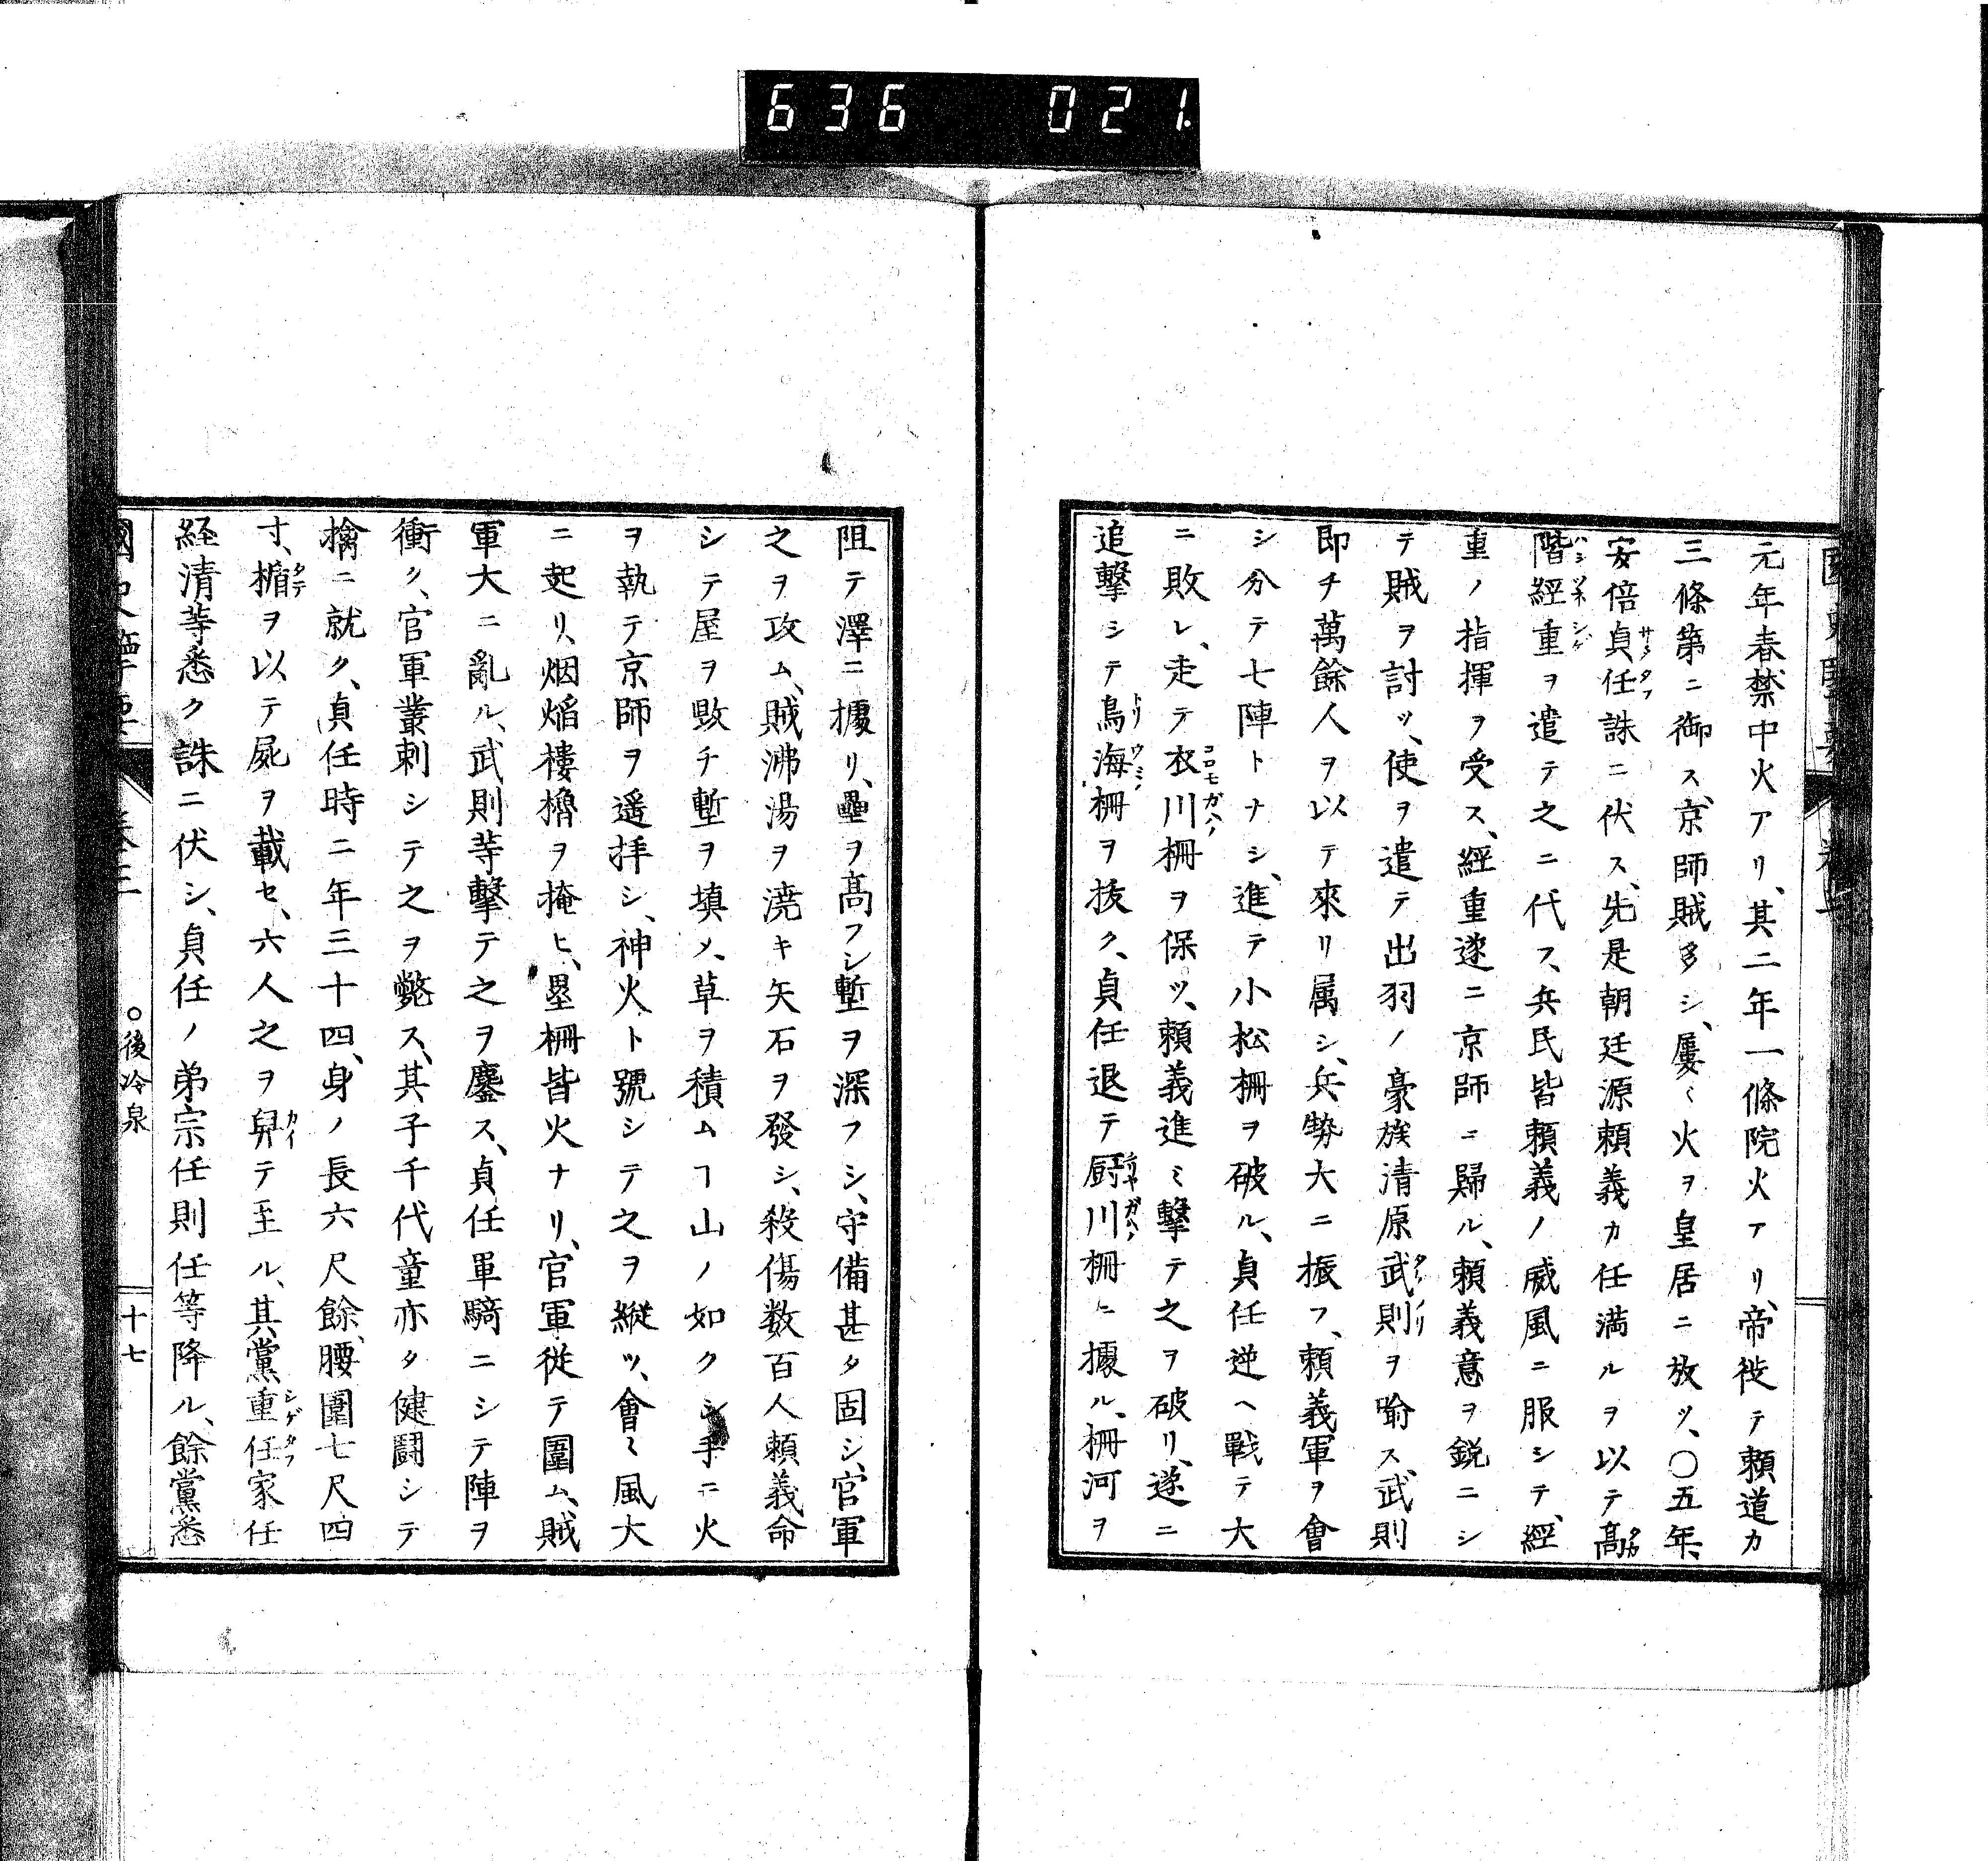 636 021
元年春禁中火アリ、其二年一條院火アリ、帝徙テ頼道カ
三條第ニ御ス、京師賊多シ、屢〻火ヲ皇居ニ放ツ、〇五年、
安倍貞任誅ニ伏ス、先是朝廷源頼義カ任満ルヲ以テ髙
階經重ヲ遣テ之ニ代フ、兵民皆頼義ノ威風ニ服シテ、經
重ノ指揮ヲ受ス、經重遂ニ京師ニ歸ル、頼義意ヲ鋭ニシ
テ賊ヲ討ツ、使ヲ遣テ出羽ノ豪族清原武則ヲ喩ス、武則
即チ萬餘人ヲ以テ來リ属シ、兵勢大ニ振フ、頼義軍ヲ會
シ分テ七陣トナシ、進テ小松柵ヲ破ル、貞任逆ヘ戰テ大
ニ敗レ、走テ衣川柵ヲ保ツ、頼義進ミ擊テ之ヲ破リ、遂ニ
追擊シテ鳥海柵ヲ抜ク、貞任退テ厨川柵ニ據ル、柵河ヲ
阻テ澤ニ據リ、壘ヲ髙フシ塹ヲ深フシ、守備甚タ固シ、官軍
之ヲ攻ム、賊沸湯ヲ澆キ矢石ヲ發シ、殺傷数百人頼義命
シテ屋ヲ毀チ塹ヲ填メ、草ヲ積ムヿ山ノ如クシ手ニ火
ヲ執テ京師ヲ遥拝シ、神火ト號シテ之ヲ縦ツ、會〻風大
ニ起リ、烟焔樓櫓ヲ掩ヒ、塁柵皆火ナリ、官軍従テ圍ム、賊
軍大ニ亂ル、武則等擊テ之ヲ鏖ス、貞任單騎ニシテ陣ヲ
衝ク、官軍叢刺シテ之ヲ斃ス、其子千代童亦タ健鬪シテ
擒ニ就ク、貞任時ニ年三十四、身ノ長六尺餘、腰圍七尺四
寸、楯ヲ以テ屍ヲ載セ、六人之ヲ舁テ至ル、其黨重任家任
経清等悉ク誅ニ伏シ、貞任ノ弟宗任則任等降ル、餘黨悉
卷三 〇後冷泉 十七